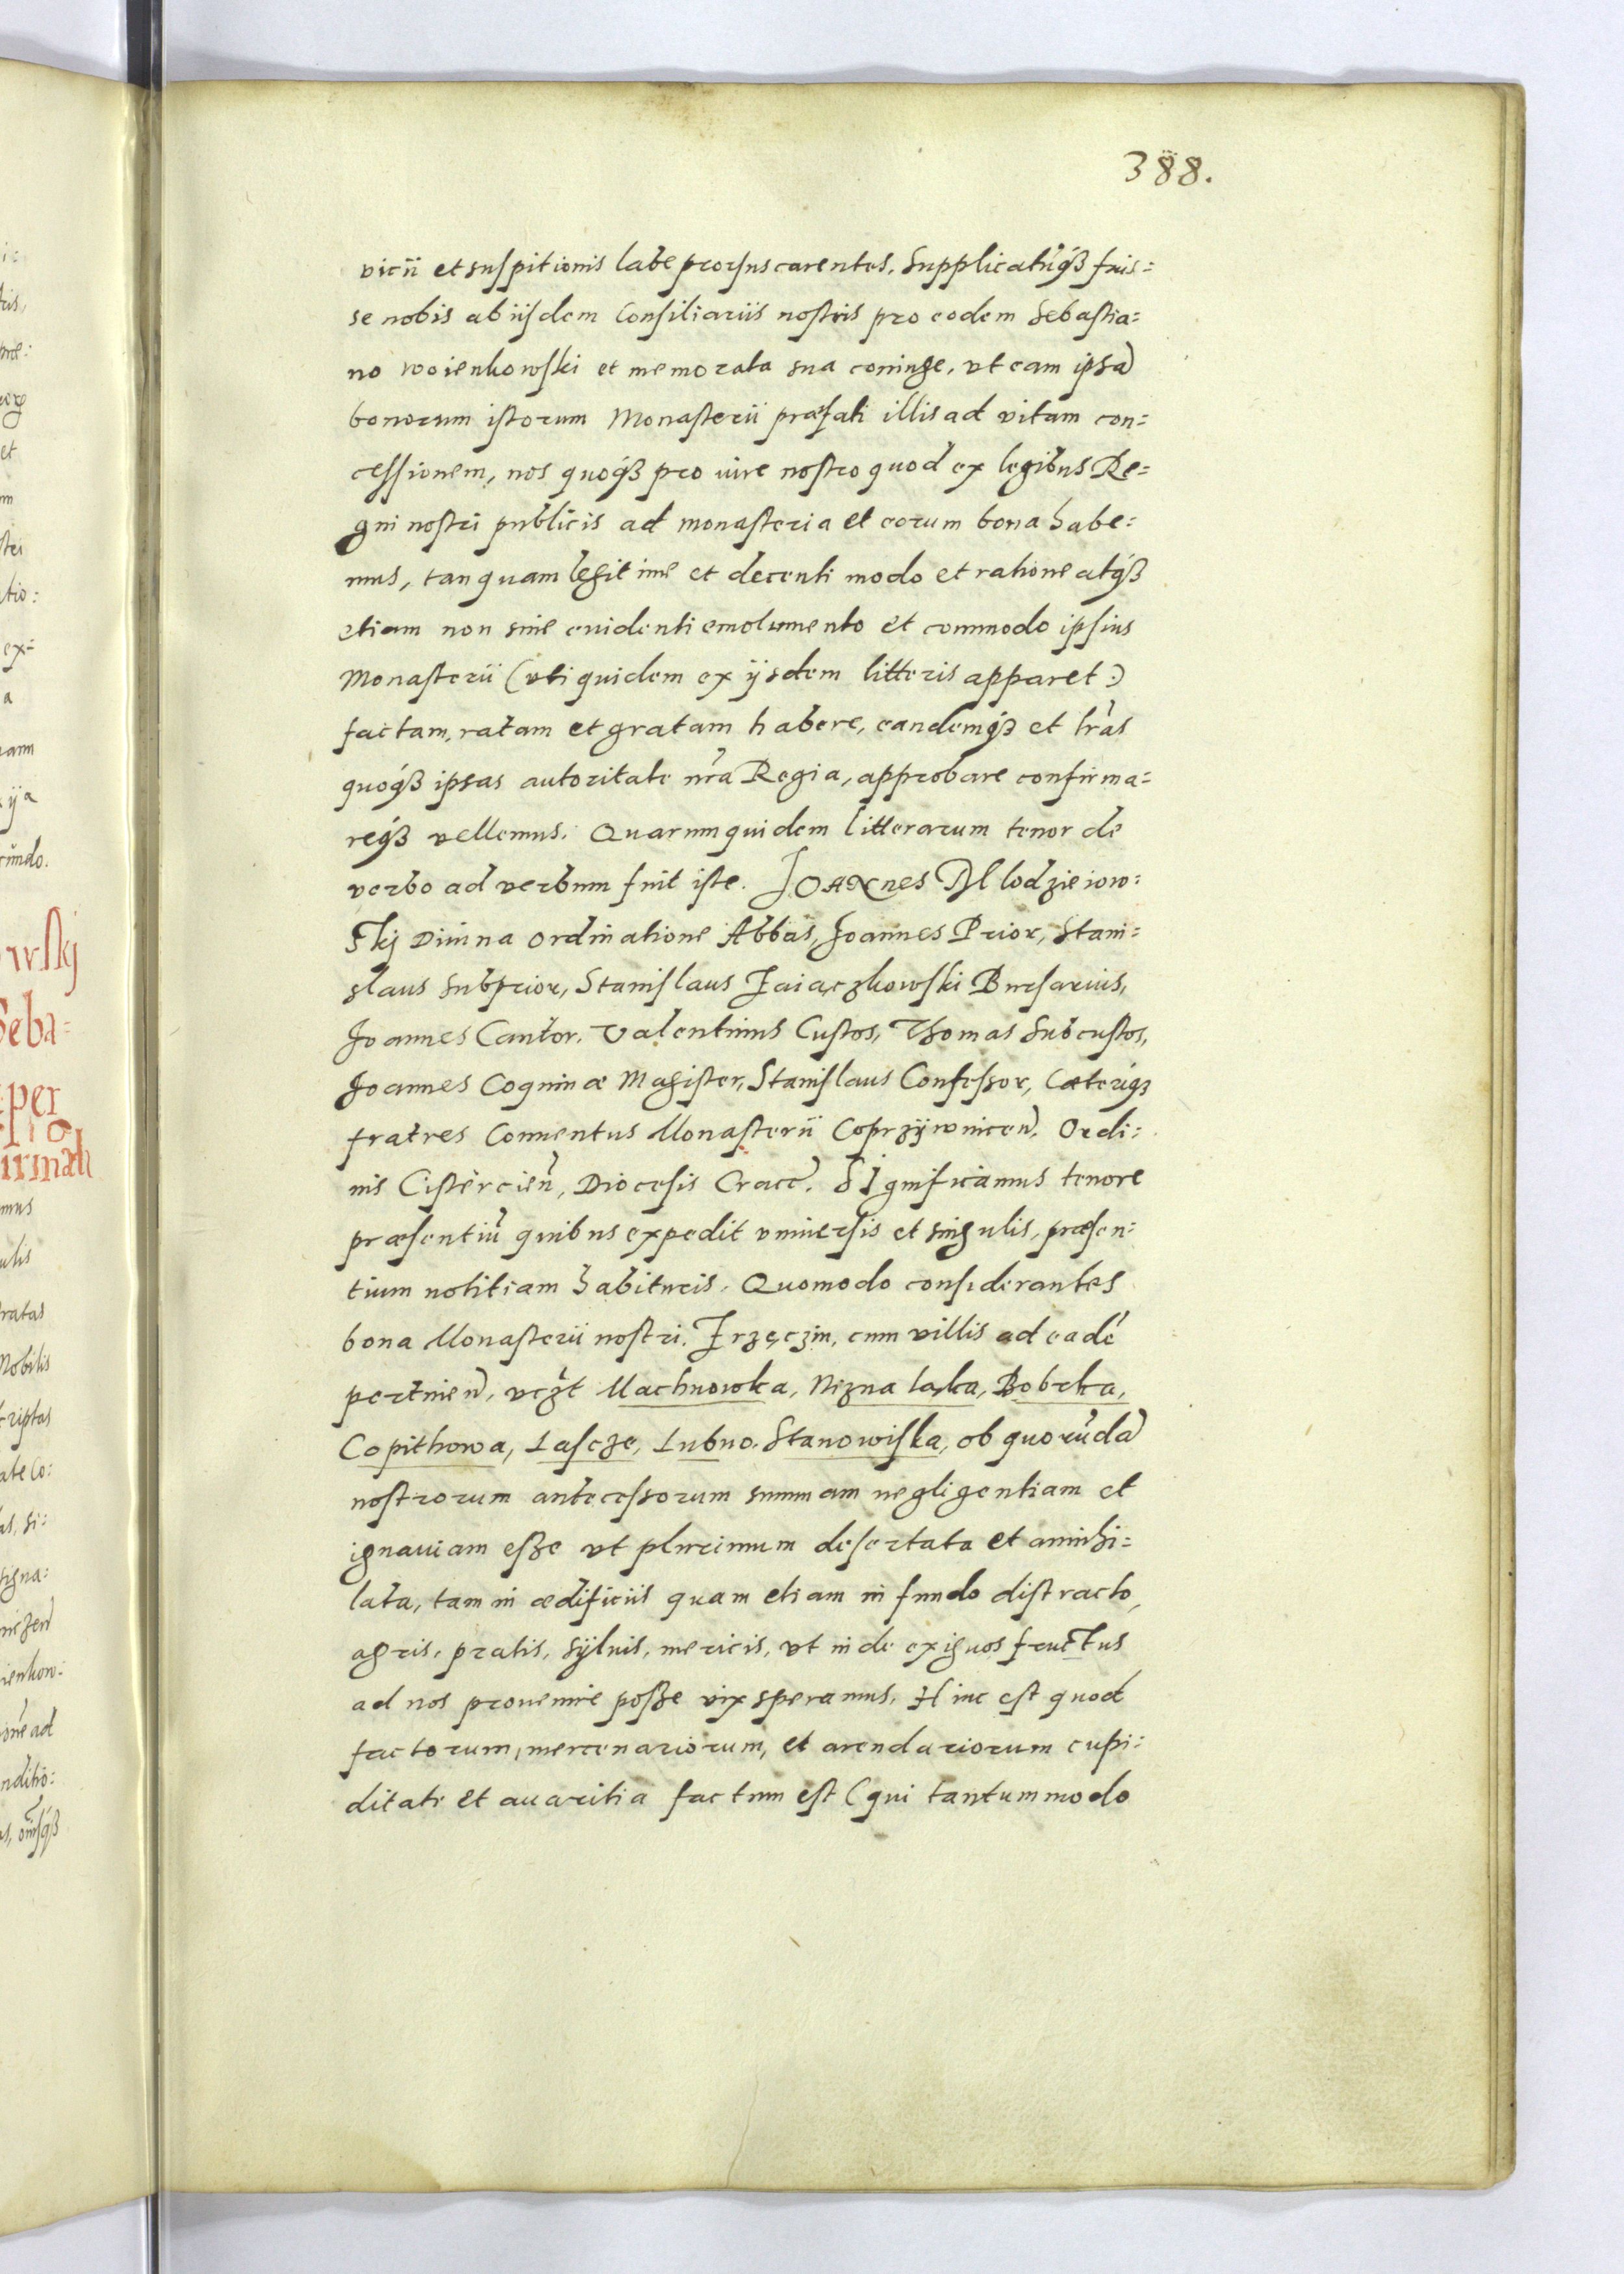 388.
vicii et suspitionis labe prorsus carentes. Supplicatũq́ꝫ fuis=
se nobis ab iisdem Consiliariis nostris pro eodem Sebastia=
no Woienkowski et memorata sua coniuge, vt eam ipsã
bonorum istorum Monasterii præfati illis ad vitam con=
cessionem, nos quoq́ꝫ pro iure nostro quod ex legibus Re=
gni nostri publicis ad monasteria et eorum bona habe=
mus, tanquam legitime et decenti modo et ratione atq́ꝫ
etiam non sine euidenti emolumento et commodo ipsius
Monasterii (vti quidem ex ijsdem litteris apparet:)
factam, ratam et gratam habere, eandemq́ꝫ et lr̃as
quoq́ꝫ ipsas autoritate nr̃a Regia, approbare confirma=
req́ꝫ vellemus. Quarum quidem litterarum tenor de
verbo ad verbum fuit iste. Joannes Mlodzieiow=
skj Diuina ordinatione Abbas, Joannes Prior, Stani=
slaus Subprior, Stanislaus Zaiączkowski Bursarius,
Joannes Cantor. Valentinus Custos, Thomas Subcustos,
Joannes Coquinæ Magister, Stanislaus Confessor, Cæteriq́ꝫ
fratres Conuentus Monasterii Coprzÿwniceñ. Ordi=
nis Cistercieñ, Diocesis Cracc̃. Significamus tenore
præsentiũ quibus expedit vniuersis et singulis, præsen=
tium notitiam habituris. Quomodo considerantes
bona Monasterii nostri. Frzęczin, cum villis ad eadẽ
pertineñ, vczt̃ Machnowka, Nizna laka, Bobrka,
Copithowa, Lascze, Lubno. Stanowiska, ob quorũdã
nostrorum antecessorum summam negligentiam et
ignauiam esse vt plurimum desertata et annihi=
lata, tam in ædificiis quam etiam in fundo distracto,
agris, pratis, sÿluis, mericis, vt inde exiguos fructus
ad nos prouenire posse vix speramus. Hinc est quod
factorum, mercenariorum, et arendariorum cupi=
ditate et auaritia factum est (qui tantummodo